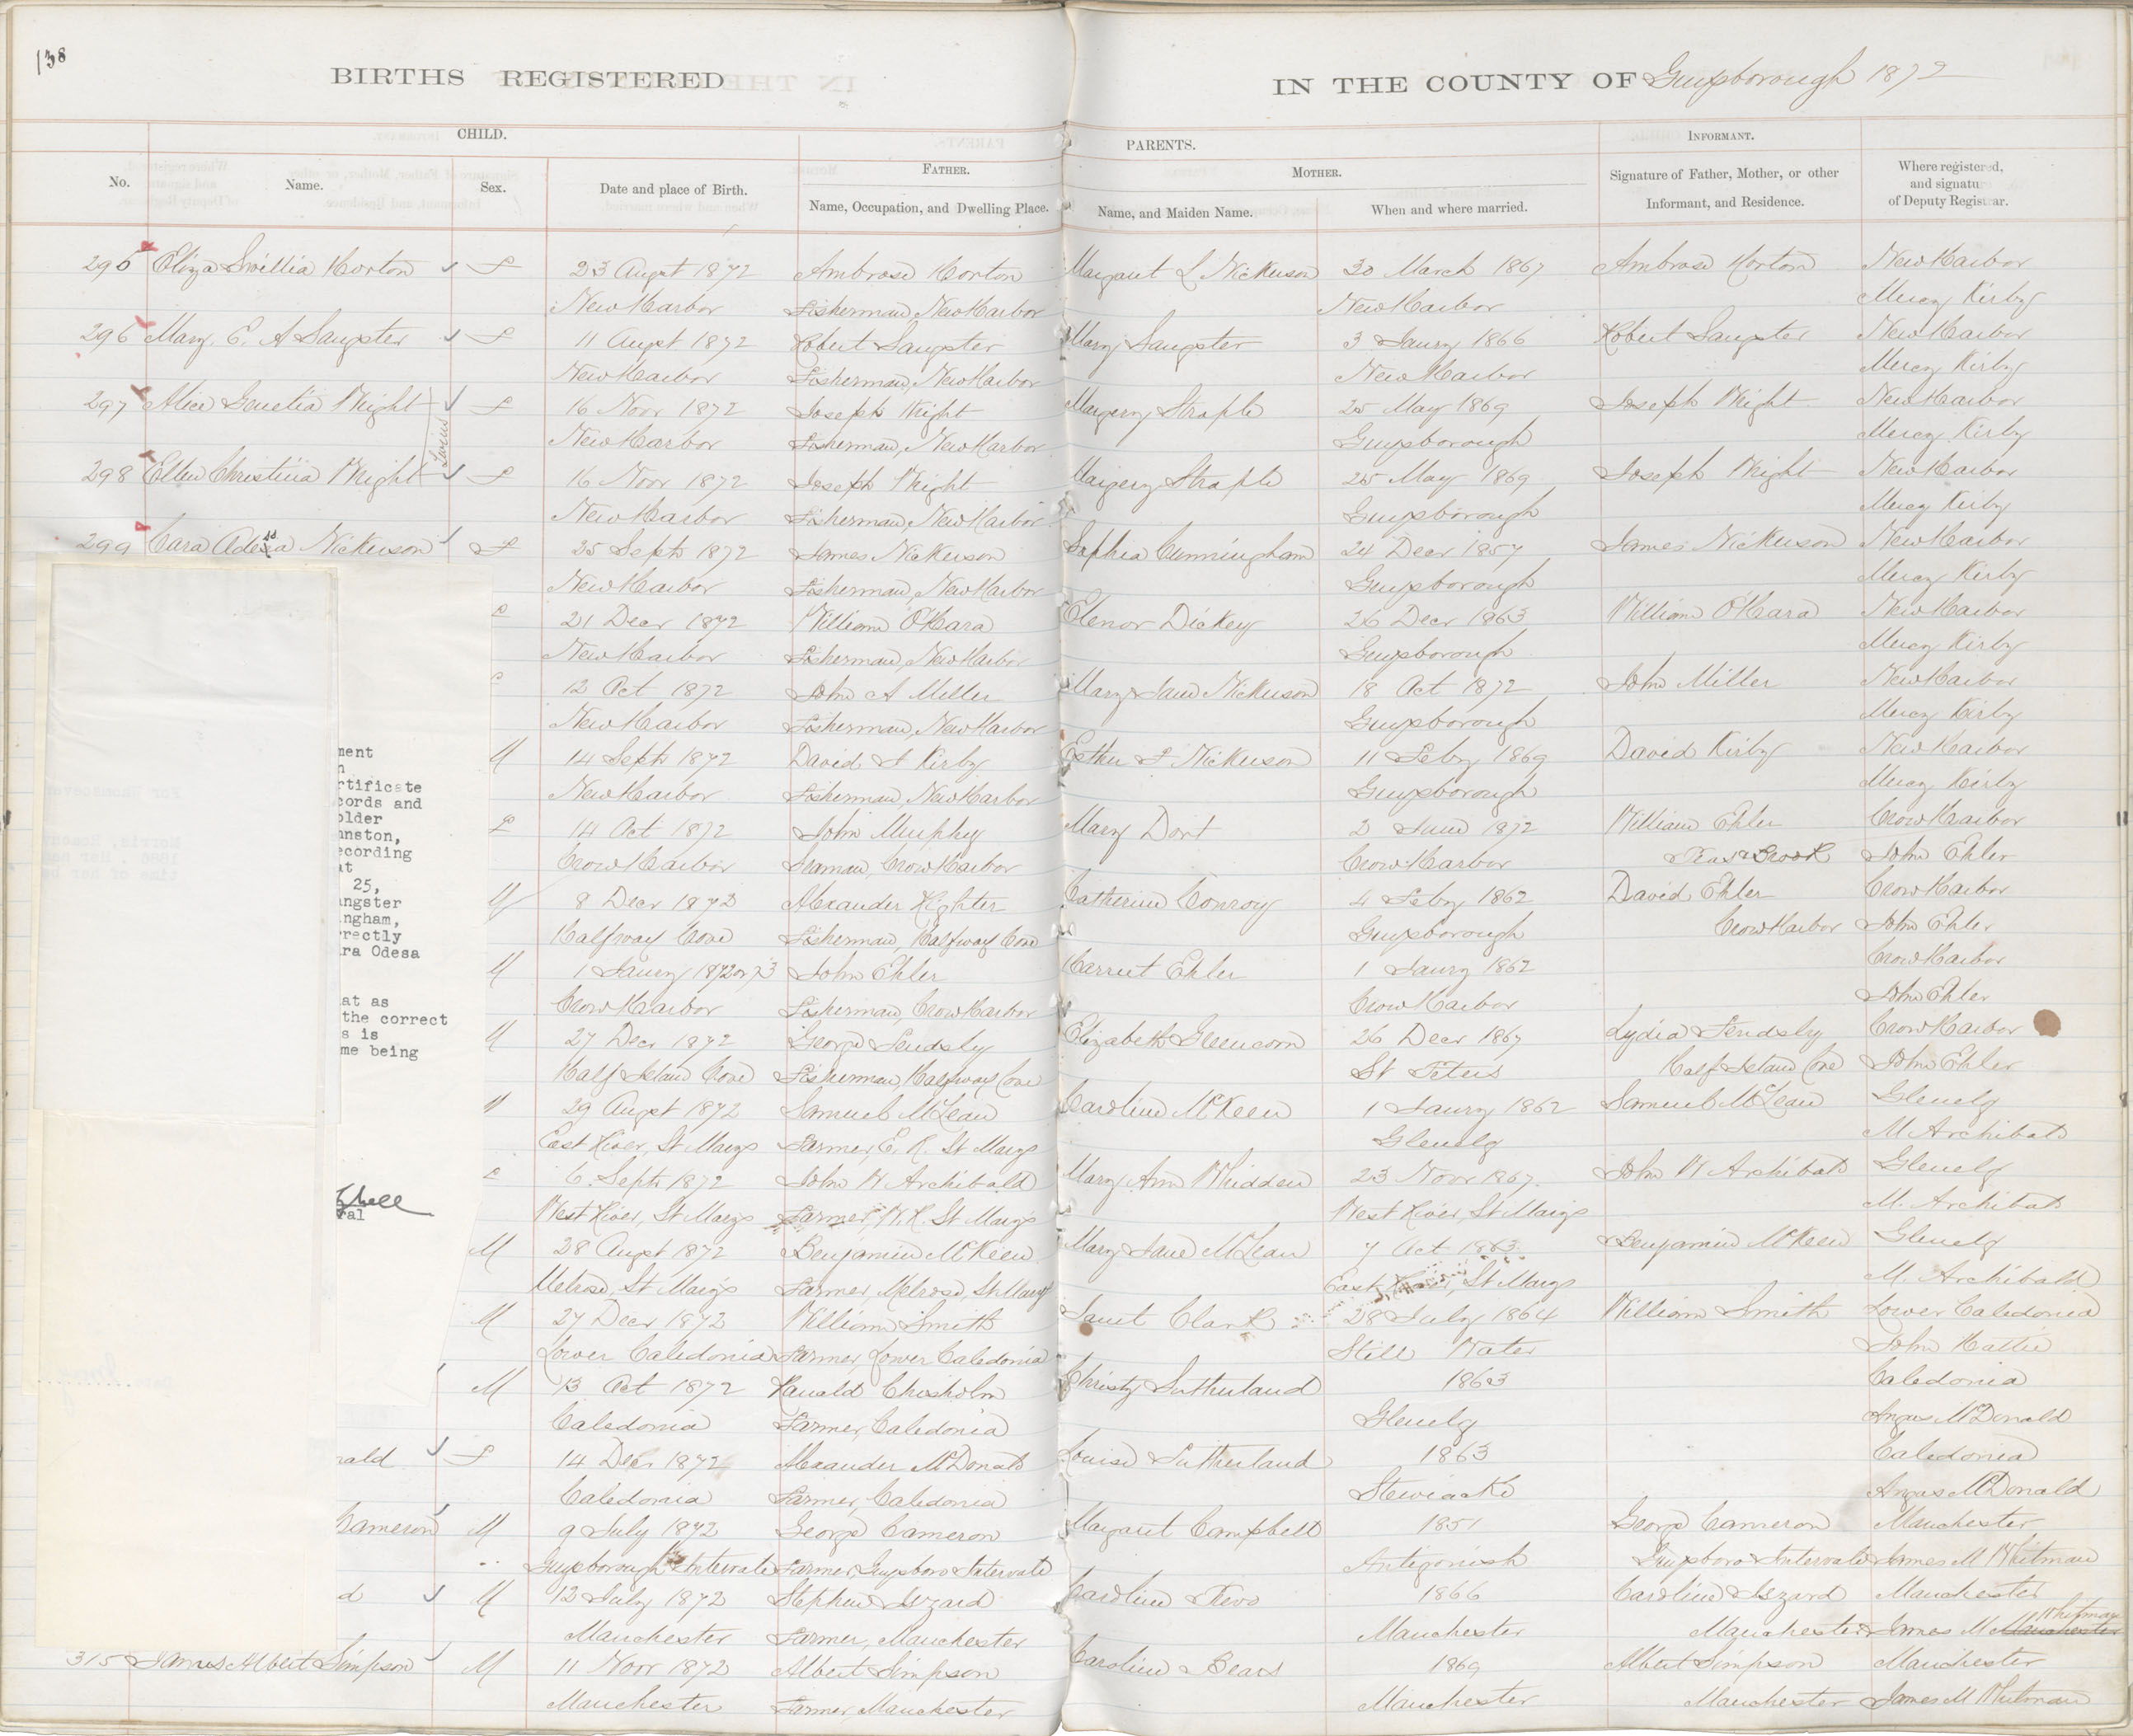 138
BIRTHS REGISTERED IN THE COUNTY OF Guysborough 1872
CHILD. PARENTS. INFORMANT.
No. Name. Sex. Date and place of Birth. FATHER. MOTHER. Signature of Father, Mother, or other Where registered,
Name, Occupation, and Dwelling Place. Name, and Maiden Name. When and where married. Informant, and Residence. and signature of Deputy Registrar.
295 Eliza Smillia Horton f 23 Augst 1872 Ambrose Horton Margaret L Nickerson 30 March 1867 Ambrose Horton New Harbor
New Harbor Fisherman, New Harbor New Harbor Mercy Kirby
296 Mary E. A Sangster f 11 Augst 1872 Robert Sangster Mary Sangster 3 Jaury 1866 Robert Sangster New Harbor
New Harbor Fisherman, New Harbor New Harbor Mercy Kirby
297 Alice Genetia Wright f 16 Novr 1872 Joseph Wright Margery Straple 25 May 1869 Joseph Wright New Harbor
New Harbor Fisherman, New Harbor Guysborough Mercy Kirby
Twins
298 Ellen Christina Wright f 16 Novr 1872 Joseph Wright Margery Straple 25 May 1869 Joseph Wright New Harbor
New Harbor Fisherman, New Harbor Guysborough Mercy Kirby
299 Cara Nickerson f 25 Septr 1872 James Nickerson Sophia Cunningham 24 Decr 1857 James Nickerson New Harbor
New Harbor Fisherman, New Harbor Guysborough Mercy Kirby
21 Decr 1872 William O'Hara Elenor Dickey 26 Decr 1863 William O'Hara New Harbor
New Harbor Fisherman, New Harbor Guysborough Mercy Kirby
12 Oct 1872 John A Miller Mary Jane Nickerson 18 Oct 1872 John Miller New Harbor
New Harbor Fisherman, New Harbor Guysborough Mercy Kirby
M 14 Septr 1872 David S Kirby Esther F Nickerson 11 Feby 1869 David Kirby New Harbor
New Harbor Fisherman, New Harbor Guysborough Mercy Kirby
14 Oct 1872 John Murphy Mary Dort 2 June 1872 William Ehler Crow Harbor
Crow Harbor Seaman, Crow Harbor Crow Harbor Brook John Ehler
M 8 Decr 1873 Alexander Righter Catherine Conroy 4 Feby 1862 David Ehler Crow Harbor
Halfway Cove Fisherman, Halfway Cove Guysborough Crow Harbor John Ehler
M 1 Jaury 1872 or 73 John Ehler Harriet Ehler 1 Jaury 1862 Crow Harbor
Crow Harbor Fisherman, Crow Harbor Crow Harbor John Ehler
M 27 Decr 1872 George Fendsly Elizabeth Gleencorn 26 Decr 1867 Lydia Fendsly Crow Harbor
Half Island Cove Fisherman, Halfway Cove St Peters Half Island Cove John Ehler
M 29 Augst 1872 Samuel McLean Caroline McKeen 1 Jaury 1862 Samuel McLean Glenelg
East River, St Marys Farmer, E. R. St Marys Glenelg M Archibald
6 Septr 1872 John W Archibald Mary Ann Whidden 23 Novr 1867 John W Archibald Glenelg
West River, St Marys Farmer, W. R. St Marys West River, St Marys M. Archibald
M 28 Augst 1872 Benjamin McKeen Mary Jane McLean 7 Oct 1863 Benjamin McKeen Glenelg
Melrose, St Marys Farmer, Melrose, St Marys East River, St Marys M. Archibald
M 27 Decr 1872 William Smith Janet Clark 28 July 1864 William Smith Lower Caledonia
Lower Caledonia Farmer, Lower Caledonia Still Water John Hattie
M 13 Oct 1872 Ranald Chisholm Christy Sutherland 1863 Caledonia
Caledonia Farmer, Caledonia Glenelg Angus McDonald
nald f 14 Decr 1872 Alexander McDonald Louisa Sutherland 1863 Caledonia
Caledonia Farmer, Caledonia Stewiacke Angus McDonald
Cameron M 9 July 1872 George Cameron Margaret Campbell 1851 George Cameron Manchester
Guysborough Intervale Farmer, Guysboro Intervale Antigonish Guysboro Intervale James M Whitman
d M 12 July 1872 Stephen Lezard Caroline 1866 Caroline Lezard Manchester
Manchester Farmer, Manchester Manchester Manchester James M Whitman
315 James Albert Simpson M 11 Novr 1872 Albert Simpson Caroline Bears 1869 Albert Simpson Manchester
Manchester Farmer, Manchester Manchester Manchester James M Whitman
ment
n
rtificate
cords and
older
hnston,
ecording
at
25,
angster
ingham,
rrectly
ara Odesa
at as
the correct
s is
me being
ral